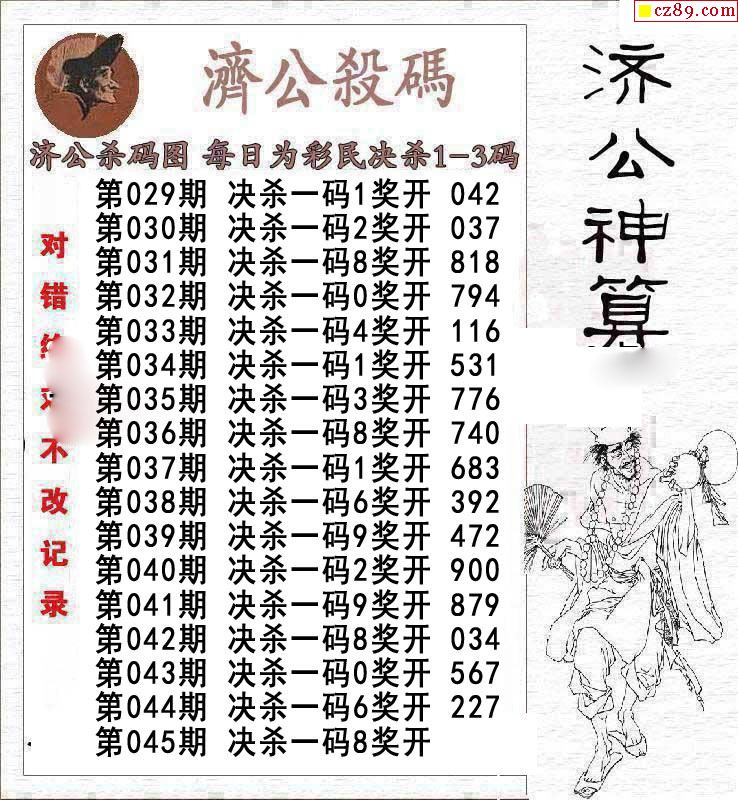 cz89.com
濟公殺碼
济公杀码图 每日为彩民决杀1-3码
第029期 决杀一码1奖开 042
第030期 决杀一码2奖开 037
第031期 决杀一码8奖开 818
第032期 决杀一码0奖开 794
第033期 决杀一码4奖开 116
第034期 决杀一码1奖开 531
第035期 决杀一码3奖开 776
第036期 决杀一码8奖开 740
第037期 决杀一码1奖开 683
第038期 决杀一码6奖开 392
第039期 决杀一码9奖开 472
第040期 决杀一码2奖开 900
第041期 决杀一码9奖开 879
第042期 决杀一码8奖开 034
第043期 决杀一码0奖开 567
第044期 决杀一码6奖开 227
第045期 决杀一码8奖开
对错不改记录
济公神算